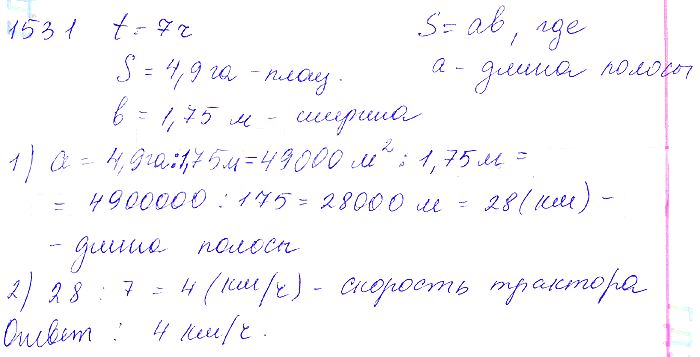 1531 t = 7ч S = ab, где
S = 4,9 га - площ. a - длина полосы
b = 1,75 м - ширина
1) a = 4,9га:1,75м = 49000 м² : 1,75м =
= 4900000 : 175 = 28000 м = 28 (км) -
- длина полосы
2) 28 : 7 = 4 (км/ч) - скорость трактора
Ответ: 4 км/ч.